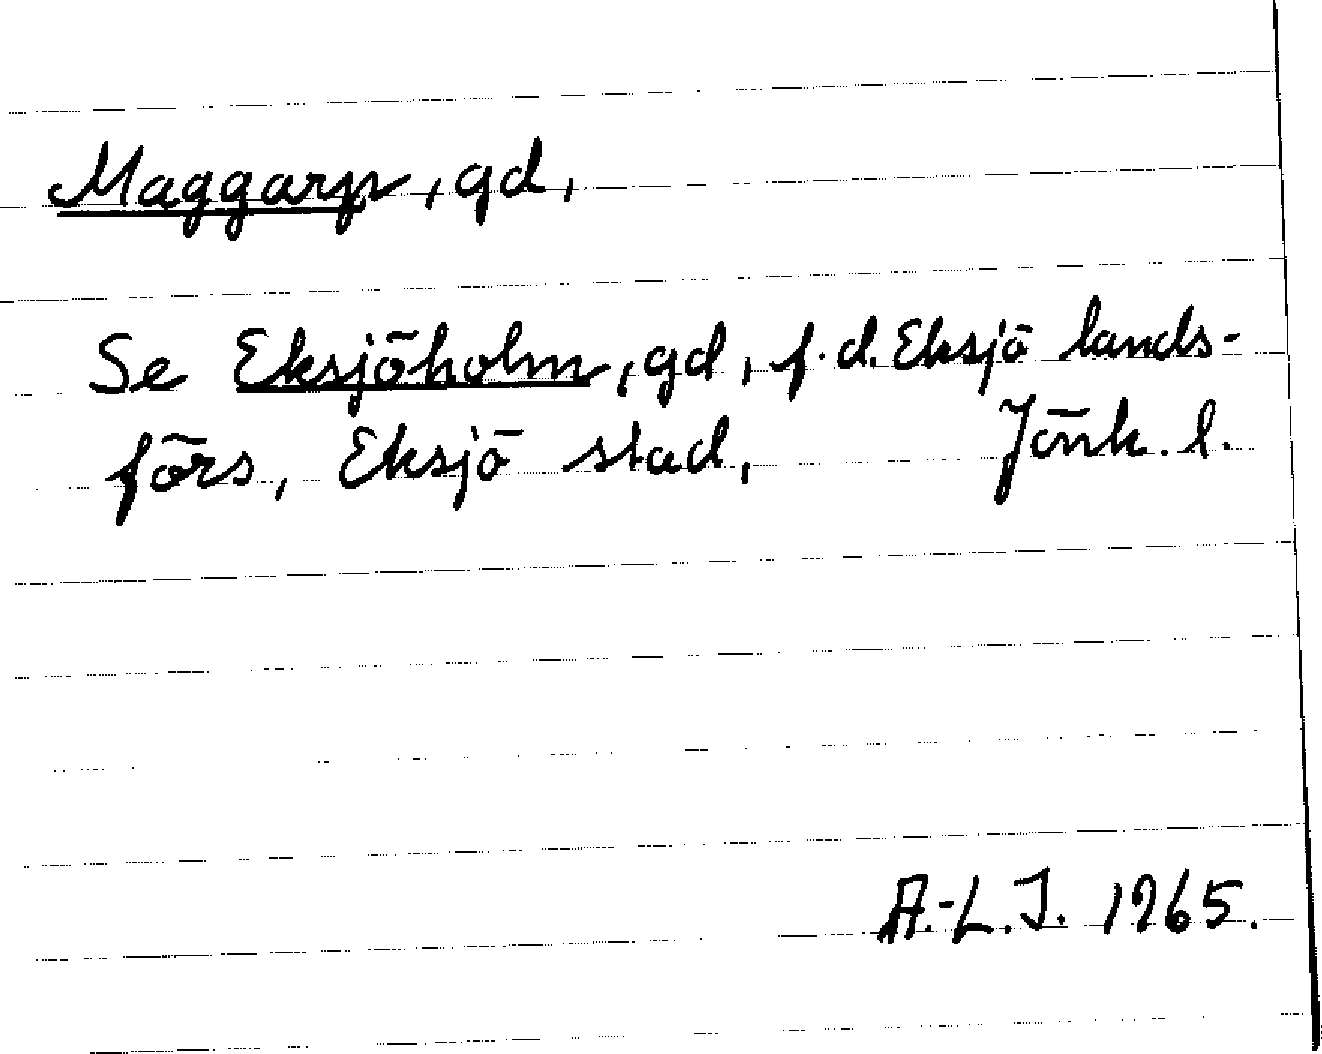 Maggarp, gd,
Se Eksjöholm, gd, f.d. Eksjö lands-
förs, Eksjö stad, Jönk. l.
A.-L.J. 1965.